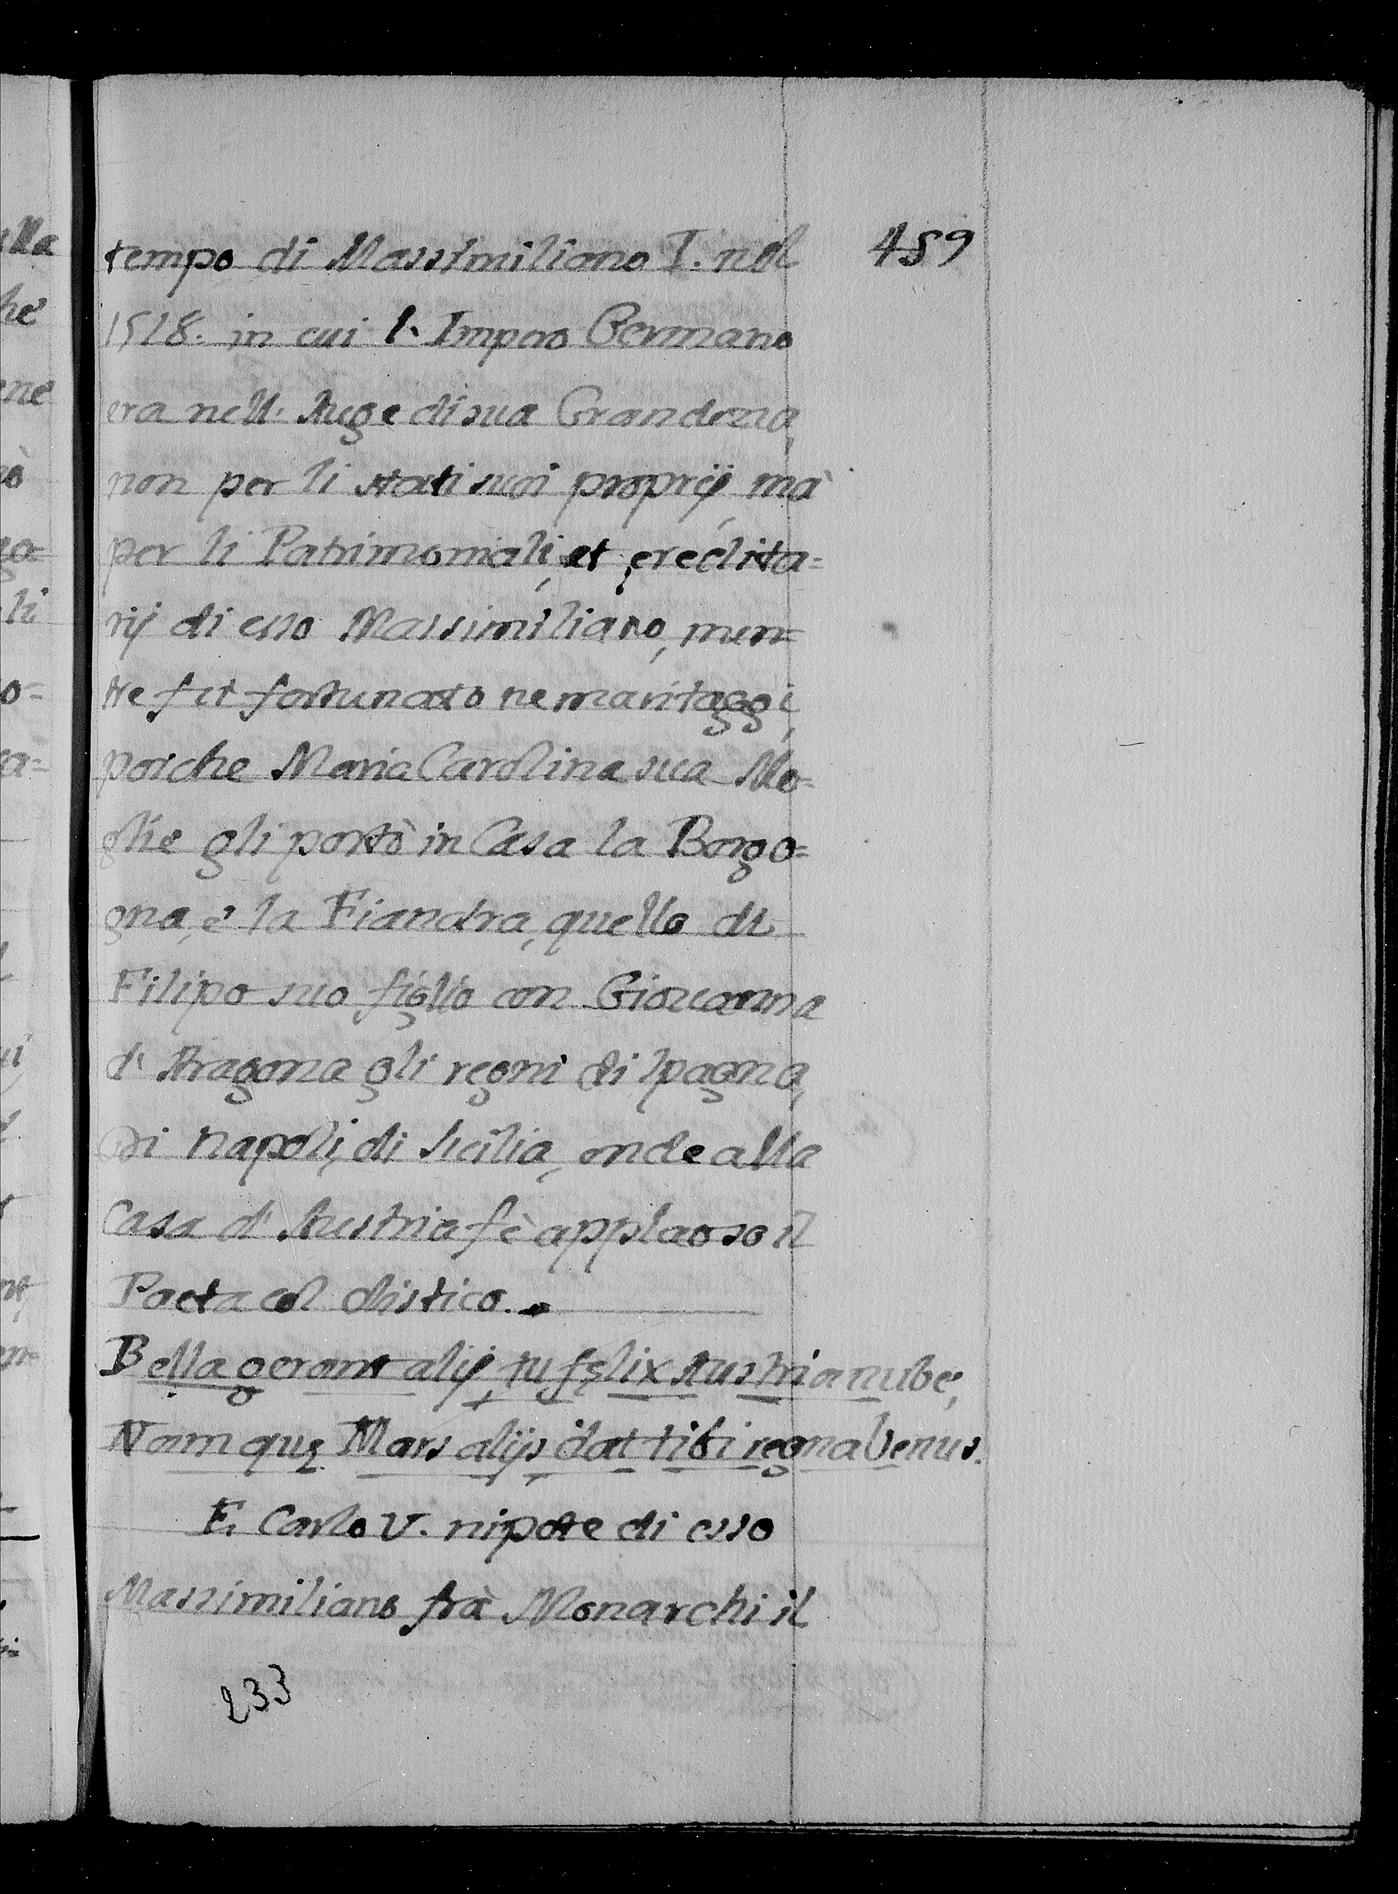 tempo di Massimiliano I. nel 459
1518. in cui l. Impero Germano
era nell. Auge di sua Grandeza,
non per li stati suoi proprij, mà
per li Patrimoniali, et eredita=
rij di esso Massimiliano, men=
tre fu fortunato ne maritaggi,
poiche Maria Carolina sua Mo=
glie gli portò in Casa la Borgo=
gna, e la Fiandra, quello di
Filipo suo figlio con Giovanna
d' Aragona gli regni di Spagna,
di Napoli, di Sicilia, onde alla
Casa d' Austria fè applaoso il
Poeta col distico.
Bella gerant alij, tu felix Austria nube,
Namque Mars alijs dat tibi regna Venus.
E. Carlo V. nipote di esso
Massimiliano frà Monarchi il
233